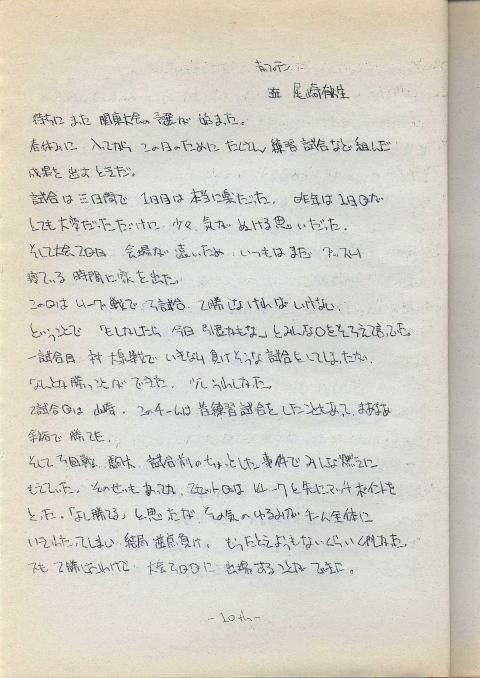 キャプテン
尾崎
待ちにまった関東大会の予選が始まった。
春休みに入ってから この日のために たくさん練習試合など組んだ
成果を出すときだ。
試合は三日間で 1日目は本当に楽だった。昨年は1日目が
とても大変だっただけに 少々 気がぬける思いだった。
そして大会2日目 会場が遠いため いつもはまだ グッスリ
寝ている時間に家を出た。
この日はリーグ戦で 3試合 2勝しなければいけない。
ということで 「もしかしたら 今日 引退かもな」とみんな口をそろえて言ってた。
一試合目 対 戦で いきなり負けそうな試合をしてしまったが、
なんとか勝つことができた。
2試合目は山崎。このチームは 練習試合をしたこともあって まあまあ
余裕で勝てた。
そして3回戦 試合前のちょっとした事件で みんな燃えに
もえていた。そのせいもあってか、2セット目は リードを先にマッチポイントを
とった。「よし勝てる」と思ったが その気のゆるみがチーム全体に
いきわたってしまい 結局 負け。もったいなくらいくやしかった。
でも 2勝したわけで 大会3日目に出場することができた。
-10th-